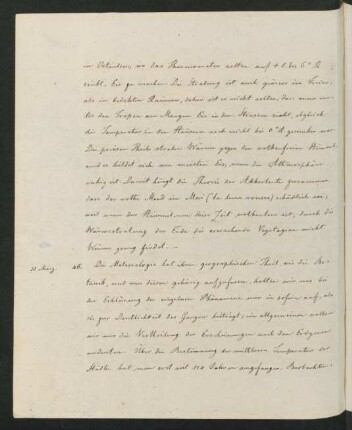 in Ostindien, wo das Thermometer selten auf + 5 bis 6° R
sinkt, Eis zu machen. Die Strahlung ist auch grösser im Freien
als in bedeckten Räumen, daher ist es nicht selten, dass man unter
den Tropen am Morgen Eis in den Strassen sieht, obgleich
die Temperatur in den Häusern noch nicht bis 0° R gesunken war.
Die freien Theile strahlen Wärme gegen den wolkenfreien Himmel
und es bildet sich am meisten Eis, wenn die Atmosphäre
ruhig ist. Damit hängt die Theorie der Ackerleute zusammen
dass der rothe Mond im Mai (la lune rousse) schädlich sei,
weil wenn der Himmel um diese Zeit wolkenlos ist, durch die
Wärmestralung der Erde die erwachende Vegetazion nicht
Wärme genug findet.
31 März. 46. Die Meteorologie hat ihren geographischen Theil wie die Bo-
tanik, und um diesen gehörig aufzufassen, halten wir uns bei
der Erklärung der einzelnen Phänomene nur in sofern auf, als
sie zur Deutlichkeit des Ganzen beiträgt; im allgemeinen wollen
wir nur die Vertheilung der Erscheinungen nach den Erdzonen
andeuten. Über die Bestimmung der mittleren Temperatur der
Städte hat man erst seit 150 Jahren angefangen, Beobachtun-